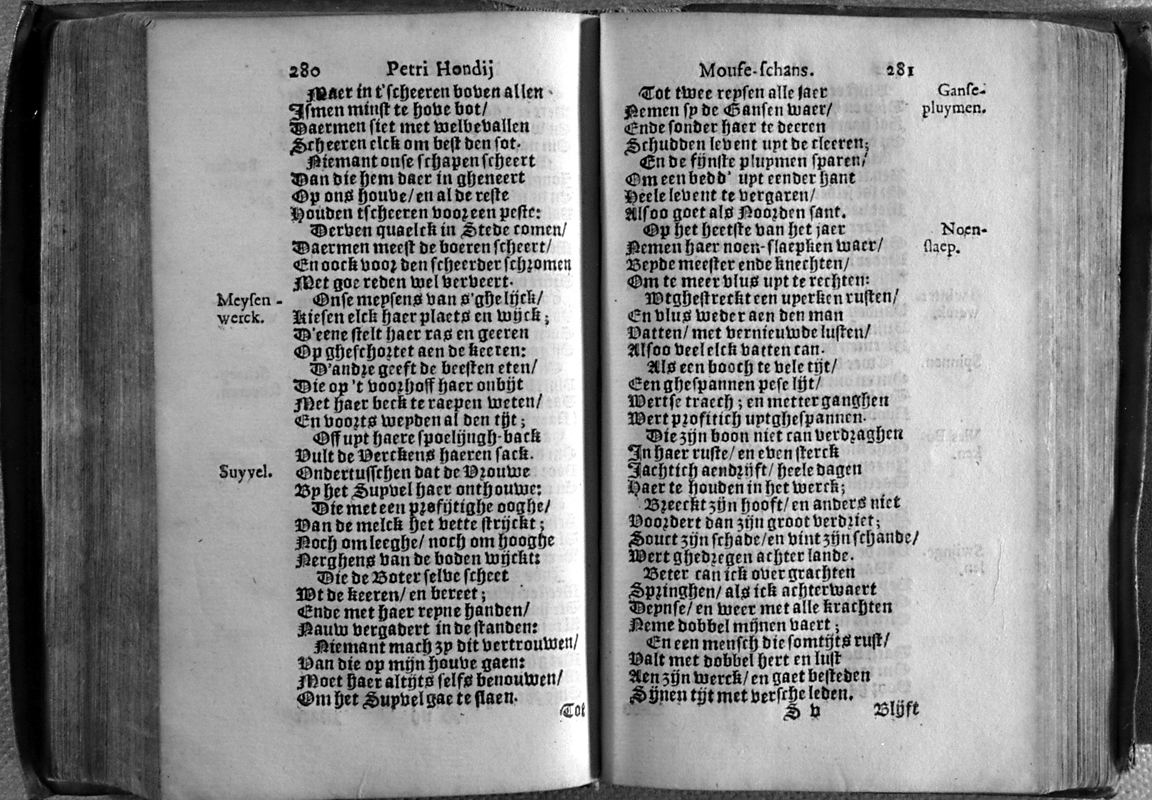 280 Petri Hondij
Maer in t'scheeren boven allen
Ismen minst te hove bot/
Daermen siet met welbevallen
Scheeren elck om best den sot.
Niemant onse schapen scheert
Dan die hem daer in gheneert
Op ons houve/ en al de reste
Houden tscheeren voor een peste:
Derven quaelck in Stede comen/
Daermen meest de boeren scheert/
En oock voor den scheerder schromen
Met goe reden wel verveert.
Meysen-
werck.
Onse meysens van s'ghelijck/
Kiesen elck haer plaets en wijck;
D'eene stelt haer ras en geeren
Op gheschortet aen de keeren:
D'andre geeft de beesten eten/
Die op 't voorhoff haer onbijt
Met haer beck te raepen weten/
En voorts weyden al den tijt;
Off uyt haere spoelijngh-back
Vult de Verckens haeren sack.
Suyvel.
Ondertusschen dat de Vrouwe
By het Suyvel haer onthouwe:
Die met een profijtighe ooghe/
Van de melck het vette strijckt;
Noch om leeghe/ noch om hooghe
Nerghens van de boden wijckt:
Die de Boter selve scheet
Wt de keeren/ en bereet;
Ende met haer reyne handen/
Nauw vergadert in de standen:
Niemant mach zy dit vertrouwen/
Van die op mijn houve gaen:
Moet haer altijts selfs benouwen/
Om het Suyvel gae te slaen.
Tot
Mouse-schans. 281
Tot twee reysen alle jaer
Nemen sy de Gansen waer/
Ende sonder haer te deeren
Schudden levent uyt de cleeren;
En de fijnste pluymen sparen/
Om een bedd' uyt eender hant
Heele levent te vergaren/
Alsoo goet als Noorden sant.
Ganse-
pluymen.
Op het heetste van het jaer
Nemen haer noen-slaepken waer/
Beyde meester ende knechten/
Om te meer vlus uyt te rechten:
Noen-
slaep.
Wtghestreckt een uyerken rusten/
En vlus weder aen den man
Vatten/ met vernieuwde lusten/
Alsoo veel elck vatten can.
Als een booch te vele tijt/
Een ghespannen pese lijt/
Wertse traech; en metter ganghen
Wert profitich uytghespannen.
Die zijn boon niet can verdraghen
In haer ruste/ en even sterck
Jachtich aendrijft/ heele dagen
Haer te houden in het werck;
Breeckt zijn hooft/ en anders niet
Voordert dan zijn groot verdriet;
Souct zijn schade/ en vint zijn schande/
Wert ghedregen achter lande.
Beter can ick over grachten
Springhen/ als ick achterwaert
Deynse/ en weer met alle krachten
Neme dobbel mijnen vaert;
En een mensch die somtijts rust/
Valt met dobbel hert en lust
Aen zijn werck/ en gaet besteden
Sijnen tijt met versche leden.
S v Blijft